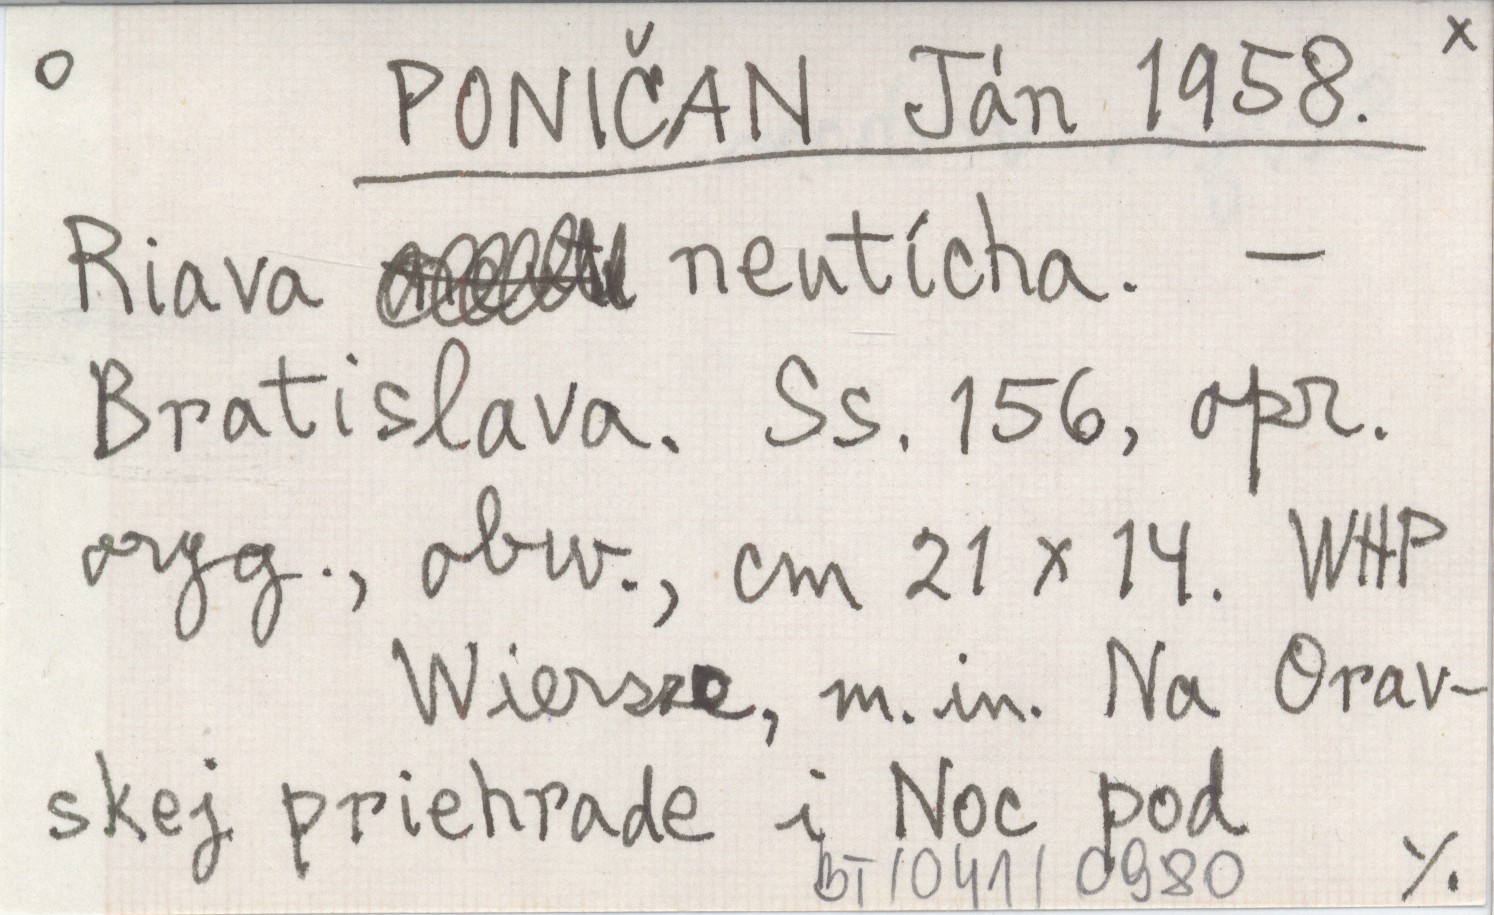 o PONIČAN Ján 1958. x
Riava neutícha. –
Bratislava. Ss. 156, opr.
oryg., obw., cm 21 x 14. WHP
Wiersze, m.in. Na Orav-
skej priehrade i Noc pod
BT/041/0980 ٪.